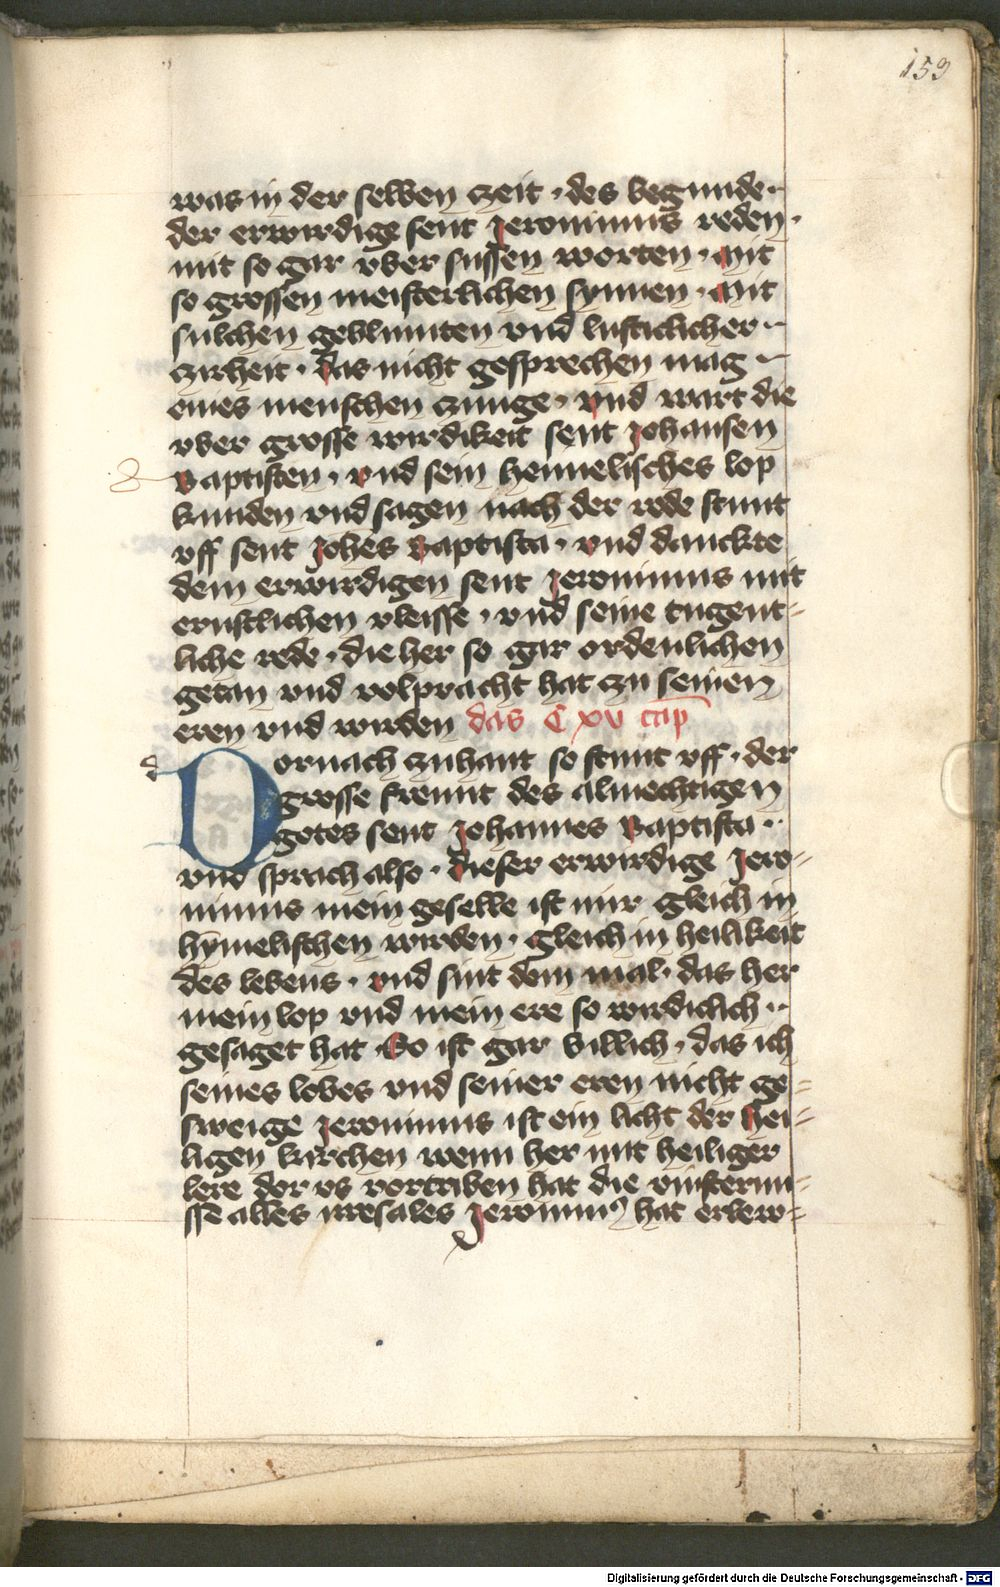 159
was in der selben czeit · des begunde ·
der erwirdige sent Jeronimus reden ·
mit so gar vber sussen worten · Mit
so grossen meisterlichen synnen · Mit
sulchen geblumten vnd lusticlicher ·
czirheit · Das nicht gesprechen mag
eines menschen czunge · Vnd wart die
vber grosse wirdikeit sent Johansen
Baptisten · Vnd sein hemelisches lop
kunden vnd sagen nach der rede stunt
vff sent Johes Baptista · vnd danckte
dem erwirdigen sent Jeronimus mit
ernstlichen vleisse · vnd seine tugent-
liche rede · die her so gar ordenlichen
getan vnd volpracht hat zu seinen
eren vnd wirden das C xv cap
d
Dornach zuhant so stunt vff · der
grosse freunt des almechtigen
gotes sent Johannes Baptista ·
vnd sprach also · Dieser erwirdige Jero-
nimus mein geselle ist mir gleich in
hymelischen wirden · gleich in heilikeit
des lebens · Vnd sint dem mal · das her
mein lop vnd mein ere so wirdiclich ·
gesaget hat · So ist gar billich · das ich
seines lobes vnd seiner eren nicht ge-
sweige Jeronimus ist ein licht der Hei-
ligen kirchen wenn her mit heiliger
lere dor vs vortriben hat die vinstern-
sse alles irresales Jeronimus hat erlew-
Digitalisierung gefördert durch die Deutsche Forschungsgemeinschaft - DFG